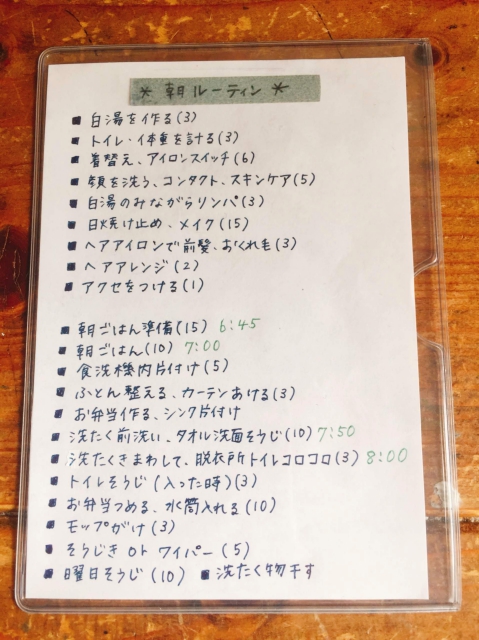 * 朝ルーティン *
■ 白湯を作る(3)
■ トイレ・体重を計る(3)
■ 着替え、アイロンスイッチ(6)
■ 顔を洗う、コンタクト、スキンケア(5)
■ 白湯のみながらリンパ(3)
■ 日焼け止め、メイク(15)
■ ヘアアイロンで前髪、おくれ毛(3)
■ ヘアアレンジ(2)
■ アクセをつける(1)
■ 朝ごはん準備(15) 6:45
■ 朝ごはん(10) 7:00
■ 食洗機内片付け(5)
■ ふとん整える、カーテンあける(3)
■ お弁当作る、シンク片付け
■ 洗たく前洗い、タオル洗面そうじ(10) 7:50
■ 洗たくきまわして、脱衣所トイレコロコロ(3) 8:00
■ トイレそうじ(入った時)(3)
■ お弁当つめる、水筒入れる(10)
■ モップがけ(3)
■ そうじき or ワイパー(5)
■ 曜日そうじ(10) ■ 洗たく物干す